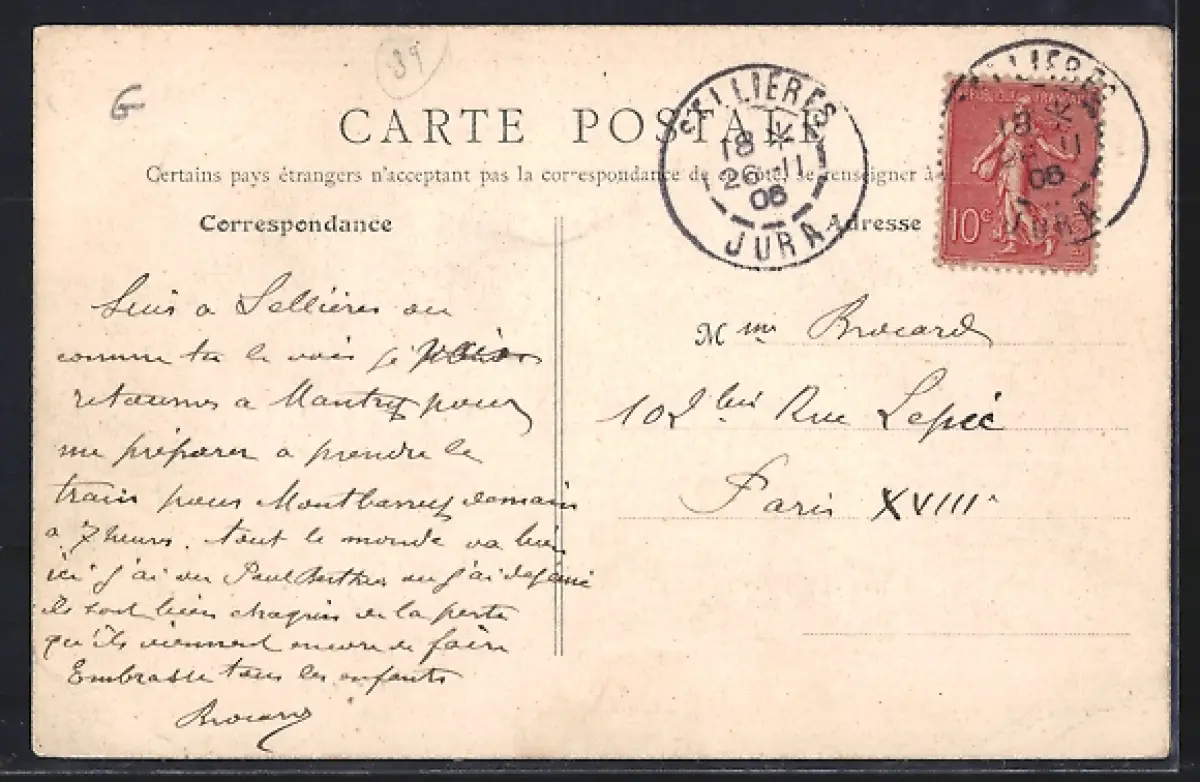 39
G
CARTE POSTALE
Certains pays étrangers n'acceptant pas la correspondance de ce côté, se renseigner à
Correspondance
Adresse
SELLIÈRES
18 *
26 - 11
06
JURA
LLIÈRES
18 *
26 11
06
JURA
REPUBLIQUE FRANÇAISE
10c
Suis a Sellières ou
comme tu le vois je
retourner a Mantry pour
me préparer a prendre le
train pour Montbarrey demain
a 7 heures. tout le monde va bien
ici j'ai vu Paul Berthier ou j'ai dejeuné
ils sont bien chagrin de la perte
qu'ils viennent encore de faire
Embrasse tous les enfants
Brocard
Mme Brocard
102 bis Rue Lepic
Paris XVIIIe